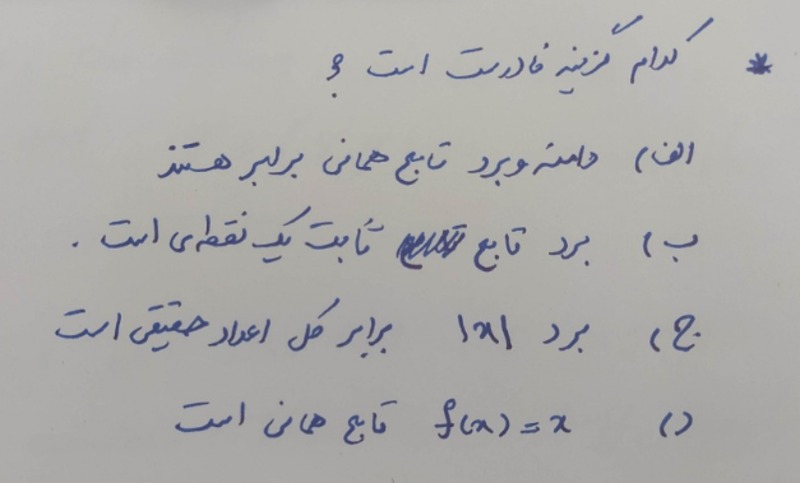 * کدام گزینه نادرست است ؟
الف) دامنه و برد تابع همانی برابر هستند
ب) برد تابع ثابت یک نقطه‌ای است .
ج) برد |x| برابر کل اعداد حقیقی است
د) f(x) = x تابع همانی است